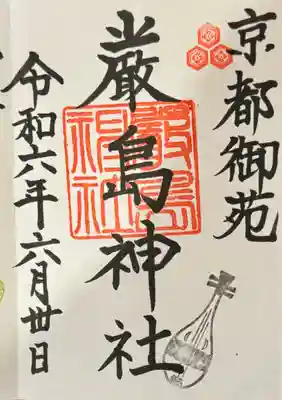 京都御苑
厳島神社
厳島神社
令和六年六月卅日